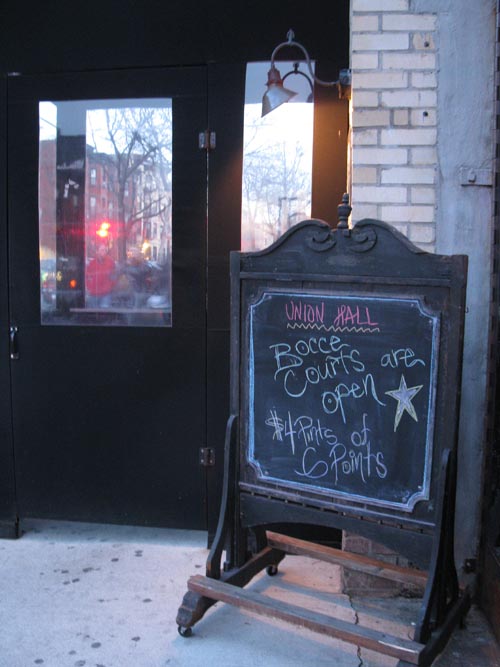 UNION HALL
Bocce
Courts are
open
$4 Pints of
6 Points